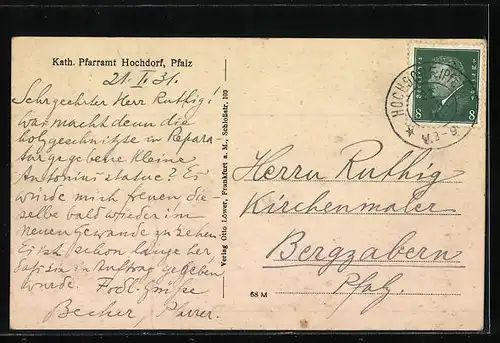 Kath. Pfarramt Hochdorf, Pfalz
21. I. 31.
Sehrgeehrter Herr Ruthig!
Was macht denn die
holzgeschnitzte in Repara-
tur gegebene kleine
Antoniusstatue? Es
würde mich freuen, die-
selbe bald wieder im
neuen Gewande zu sehen.
Es ist schon lange her
daß sie in Auftrag gegeben
wurde. Frdl. Grüße
Becher, Pfarrer.
Verlag Otto Löwer, Frankfurt a. M., Schloßstr. 100
68 M
Herrn Ruthig
Kirchenmaler
Bergzabern
Pfalz.
8 8
HOCHDORF